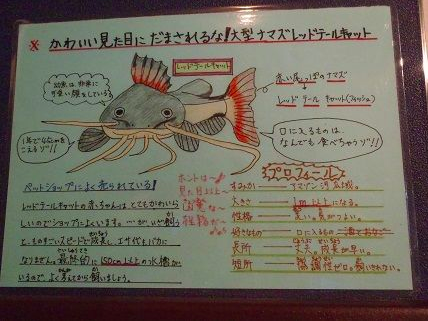 かわいい見た目にだまされるな！大型ナマズレッドテールキャット
レッドテールキャット
幼魚は非常に
可愛い顔をしている
赤い尾っぽのナマズ
レッド テール キャット(フィッシュ)
1年で40cmを
こえるゾ!!
口に入るものは
なんでも食べちゃうゾ!!
ペットショップによく売られている!
レッドテールキャットの赤ちゃんは、とてもかわいら
しいのでショップによくいます。…が、いざ飼う
と、ものすごいスピードで成長し、エサ代もバカに
なりません。最終的に150cm以上の水槽がい
るので、よく考えてから飼いましょう。
ホントは〜
見た目以上〜
プロフィール
すみか アマゾン河広域。
大きさ 1m以上になる。
性格
好きなもの 口に入るもの
長所 丈夫。成長が早い。
短所